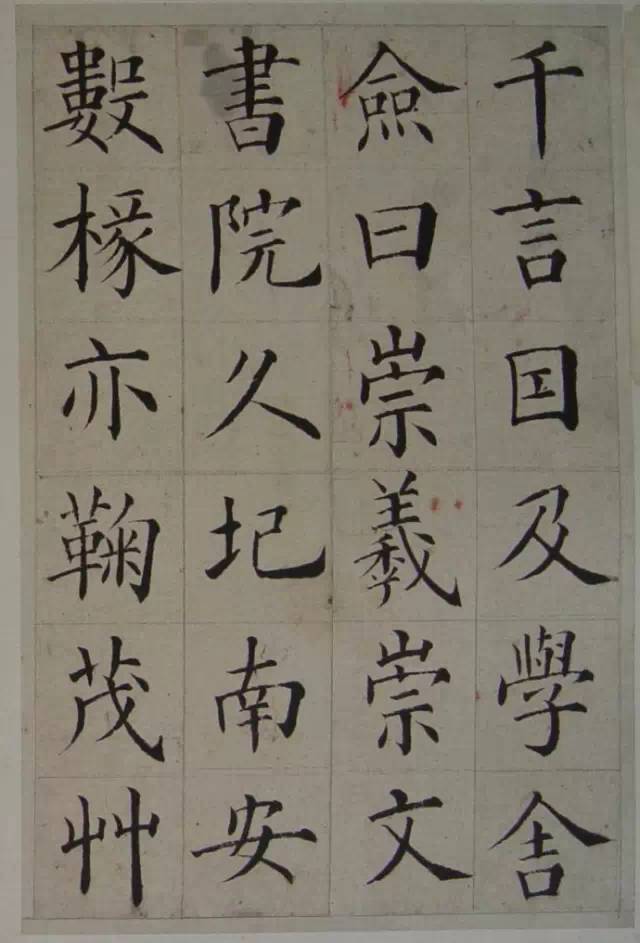 千言因及學舍
僉曰崇義崇文
書院久圮南安
數椽亦鞠茂艸